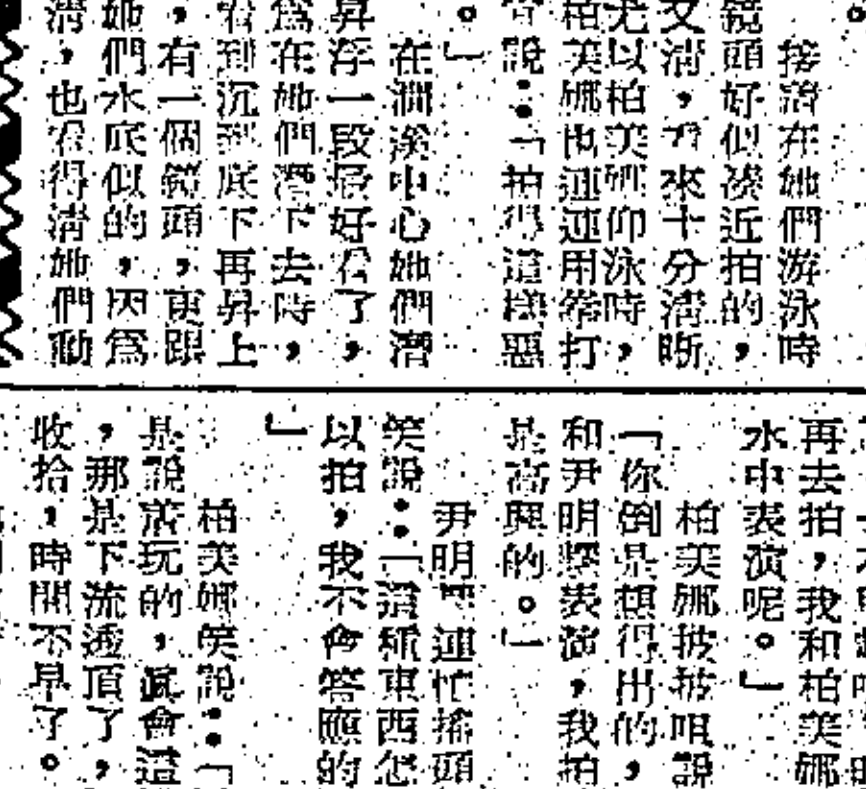 接着在她們游泳時
鏡頭好似湊近拍的，
又清，看來十分清晰
尤以柏美娜仰泳時，
柏美娜也連連用拳打
說：「拍得這樣惡
。」
在澗溪中心她們潛
昇浮一段最好看了，
爲在她們潛下去時，
看到沉到底下再昇上
，有一個鏡頭，更跟
她們水底似的，因爲
清，也看得清她們動
再去拍，我和柏美娜
水中表演呢。」
柏美娜披披咀說
「你倒是想得出的，
和尹明輝表演，我拍
是高興的。」
尹明輝連忙搖頭
笑說：「這種東西怎
以拍，我不會答應的
」
柏美娜笑說：「
是說着玩的，眞會這
，那是下流透頂了，
收拾，時間不早了。